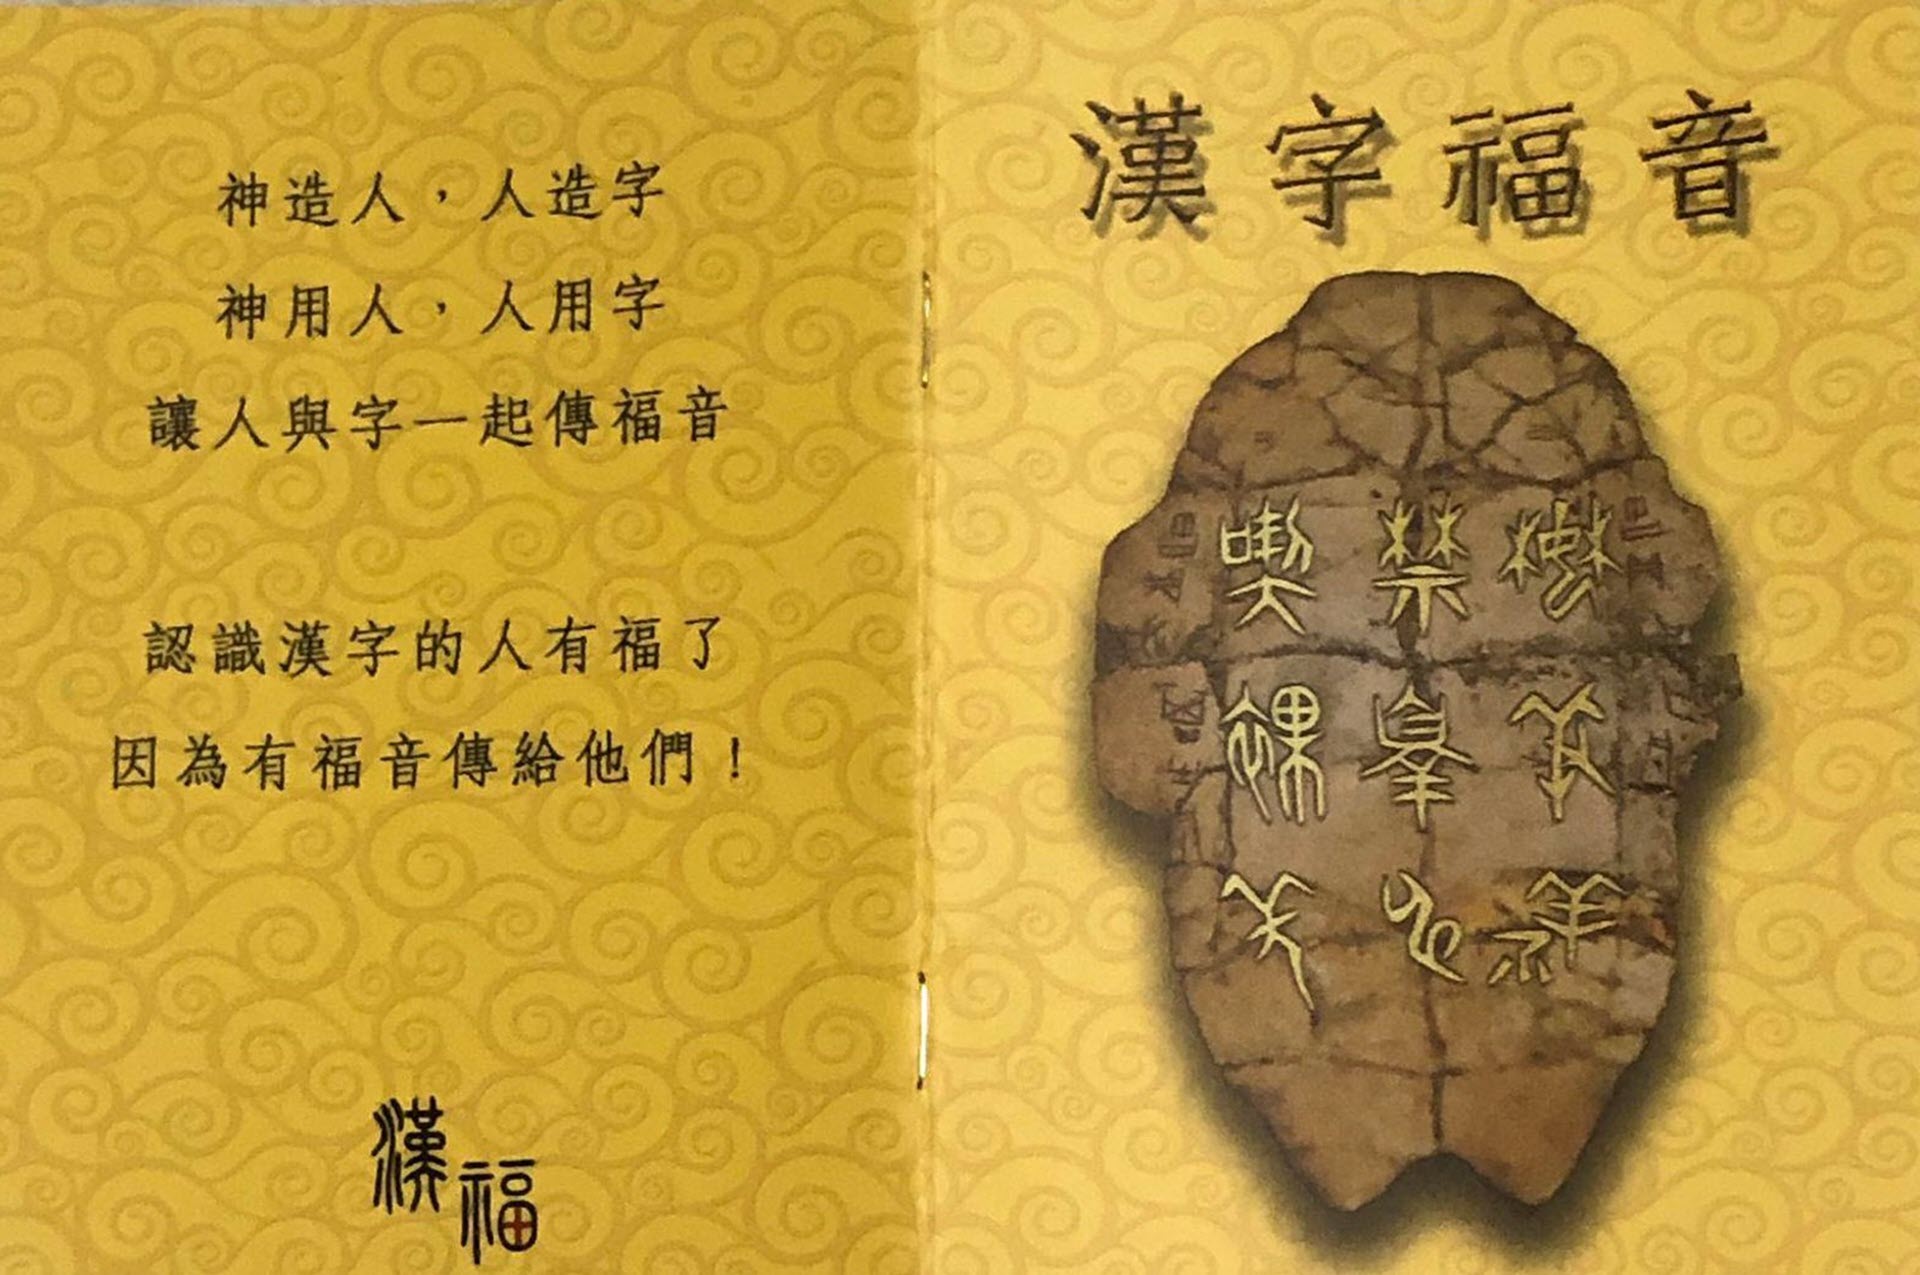 神造人，人造字
神用人，人用字
讓人與字一起傳福音
認識漢字的人有福了
因為有福音傳給他們！
漢福
漢字福音
喫禁
裸